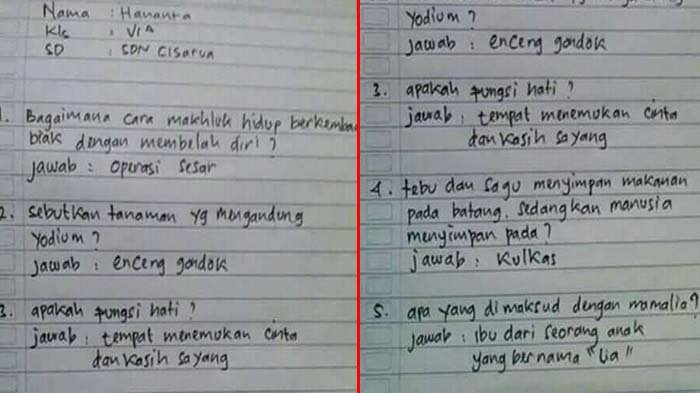 Nama : Hananta
Kls : VIA
SD : SDN Cisarua
1. Bagaimana cara makhluk hidup berkemba
biak dengan membelah diri ?
jawab : Operasi sesar
2. sebutkan tanaman yg mengandung
Yodium ?
jawab : enceng gondok
3. apakah fungsi hati ?
jawab : tempat menemukan cinta
dan kasih sayang
Yodium ?
jawab : enceng gondok
3. apakah fungsi hati ?
jawab : tempat menemukan cinta
dan kasih sayang
4. tebu dan sagu menyimpan makanan
pada batang. sedangkan manusia
menyimpan pada ?
jawab : Kulkas
5. apa yang di maksud dengan mamalia ?
jawab : ibu dari seorang anak
yang bernama "Lia"